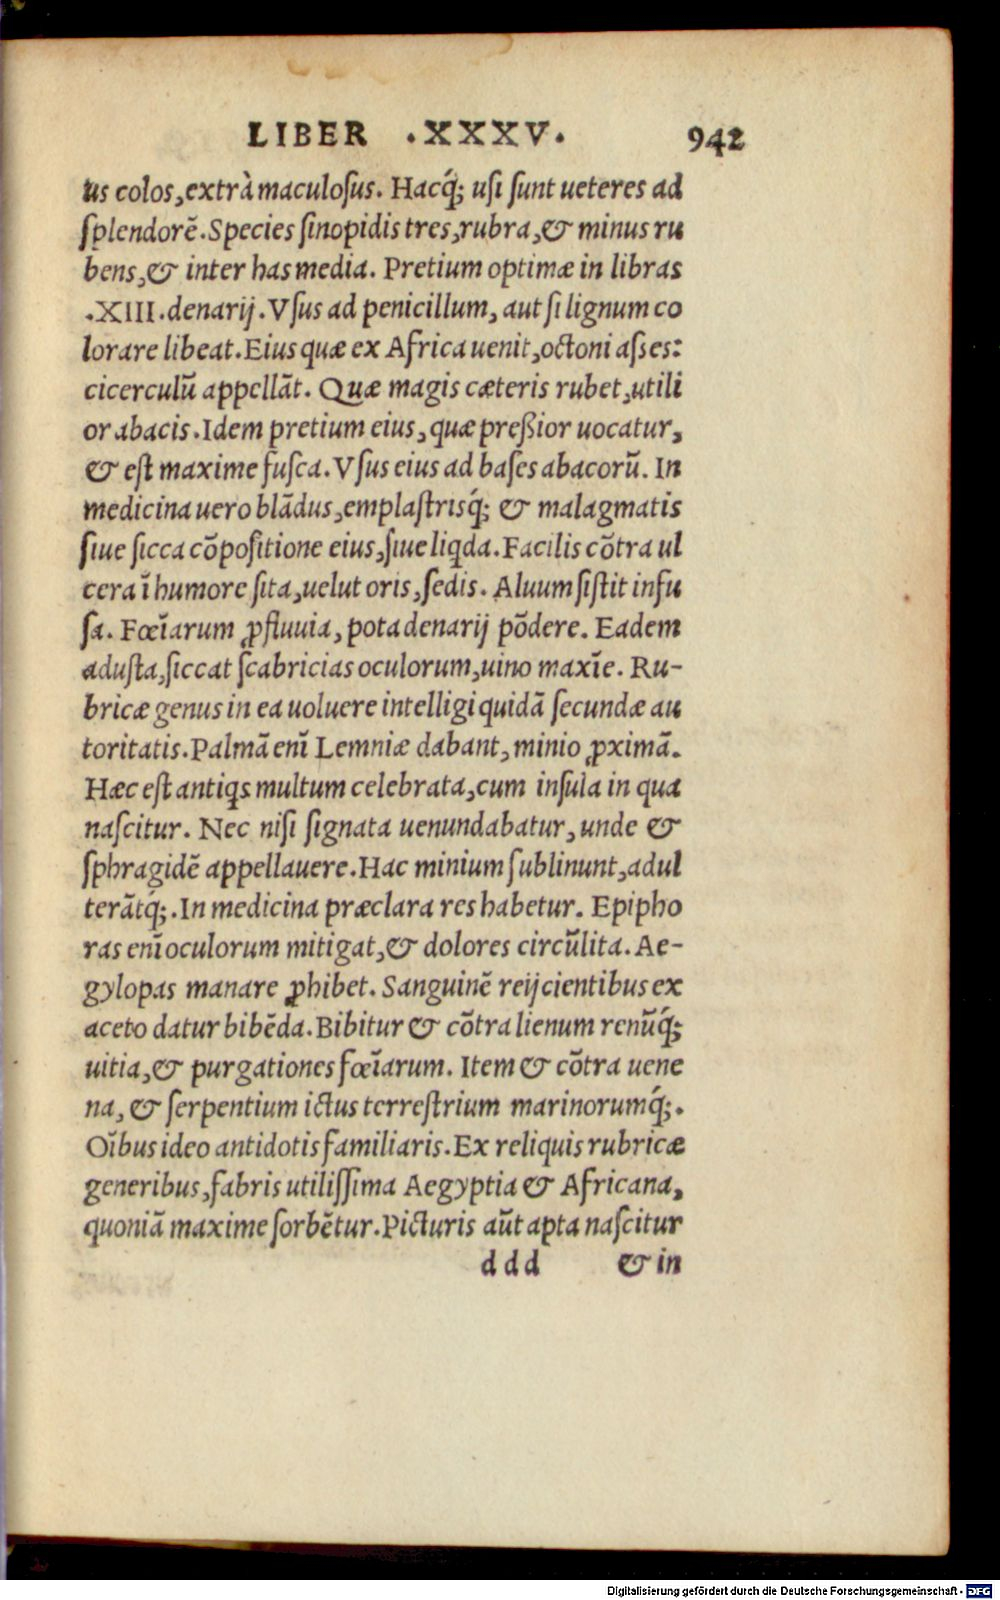 LIBER .XXXV. 942
us colos,extrà maculosus. Hacq́; usi sunt ueteres ad
splendorē.Species sinopidis tres,rubra,& minus ru
bens,& inter has media. Pretium optimæ in libras
.XIII.denarij.Vsus ad penicillum, aut si lignum co
lorare libeat.Eius quæ ex Africa uenit,octoni asses:
cicerculū appellāt. Quæ magis cæteris rubet,utili
or abacis.Idem pretium eius, quæ preßior uocatur,
& est maxime fusca.Vsus eius ad bases abacorū. In
medicina uero blādus,emplastrisq́; & malagmatis
siue sicca cōpositione eius,siue liq̇da.Facilis cōtra ul
cera ī humore sita,uelut oris,sedis. Aluum sistit infu
sa. Fœīarum ꝓfluuia, pota denarij pōdere. Eadem
adusta,siccat scabricias oculorum,uino maxīe. Ru-
bricæ genus in ea uoluere intelligi quidā secundæ au
toritatis.Palmā enī Lemniæ dabant, minio ꝓximā.
Hæc est antiq̇s multum celebrata,cum insula in qua
nascitur. Nec nisi signata uenundabatur, unde &
sphragidē appellauere.Hac minium sublinunt,adul
terātq́;.In medicina præclara res habetur. Epipho
ras enī oculorum mitigat,& dolores circūlita. Ae-
gylopas manare ꝓhibet. Sanguinē reijcientibus ex
aceto datur bibēda.Bibitur & cōtra lienum renūq́;
uitia,& purgationes fœīarum. Item & cōtra uene
na, & serpentium ictus terrestrium marinorumq́;.
Oībus ideo antidotis familiaris.Ex reliquis rubricæ
generibus,fabris utilissima Aegyptia & Africana,
quoniā maxime sorbētur.Picturis aūt apta nascitur
d d d & in
Digitalisierung gefördert durch die Deutsche Forschungsgemeinschaft - DFG